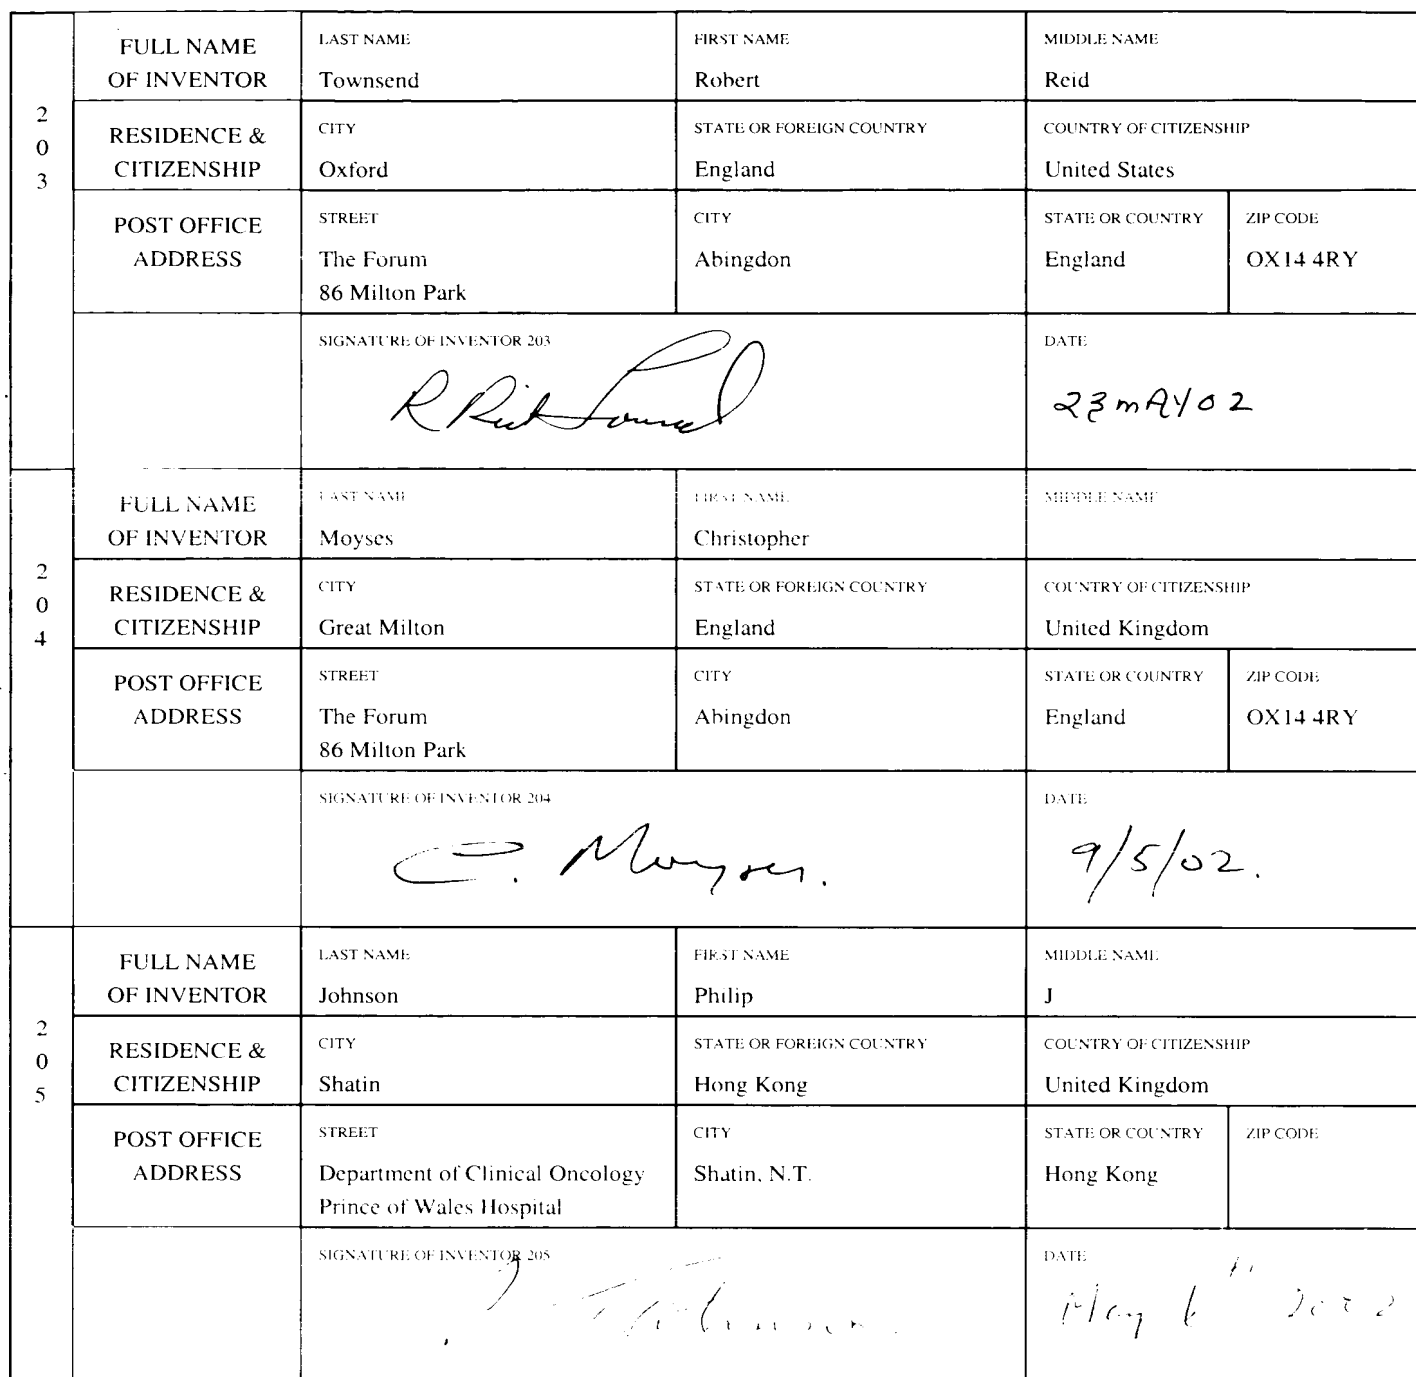 FULL NAME OF INVENTOR
LAST NAME
Townsend
FIRST NAME
Robert
MIDDLE NAME
Reid
203
RESIDENCE & CITIZENSHIP
CITY
Oxford
STATE OR FOREIGN COUNTRY
England
COUNTRY OF CITIZENSHIP
United States
POST OFFICE ADDRESS
STREET
The Forum
86 Milton Park
CITY
Abingdon
STATE OR COUNTRY
England
ZIP CODE
OX14 4RY
SIGNATURE OF INVENTOR 203
DATE
23 MAY 02
FULL NAME OF INVENTOR
LAST NAME
Moyses
FIRST NAME
Christopher
MIDDLE NAME
204
RESIDENCE & CITIZENSHIP
CITY
Great Milton
STATE OR FOREIGN COUNTRY
England
COUNTRY OF CITIZENSHIP
United Kingdom
POST OFFICE ADDRESS
STREET
The Forum
86 Milton Park
CITY
Abingdon
STATE OR COUNTRY
England
ZIP CODE
OX14 4RY
SIGNATURE OF INVENTOR 204
C. Moyses.
DATE
9/5/02.
FULL NAME OF INVENTOR
LAST NAME
Johnson
FIRST NAME
Philip
MIDDLE NAME
J
205
RESIDENCE & CITIZENSHIP
CITY
Shatin
STATE OR FOREIGN COUNTRY
Hong Kong
COUNTRY OF CITIZENSHIP
United Kingdom
POST OFFICE ADDRESS
STREET
Department of Clinical Oncology
Prince of Wales Hospital
CITY
Shatin, N.T.
STATE OR COUNTRY
Hong Kong
ZIP CODE
SIGNATURE OF INVENTOR 205
DATE
May 6th 2002